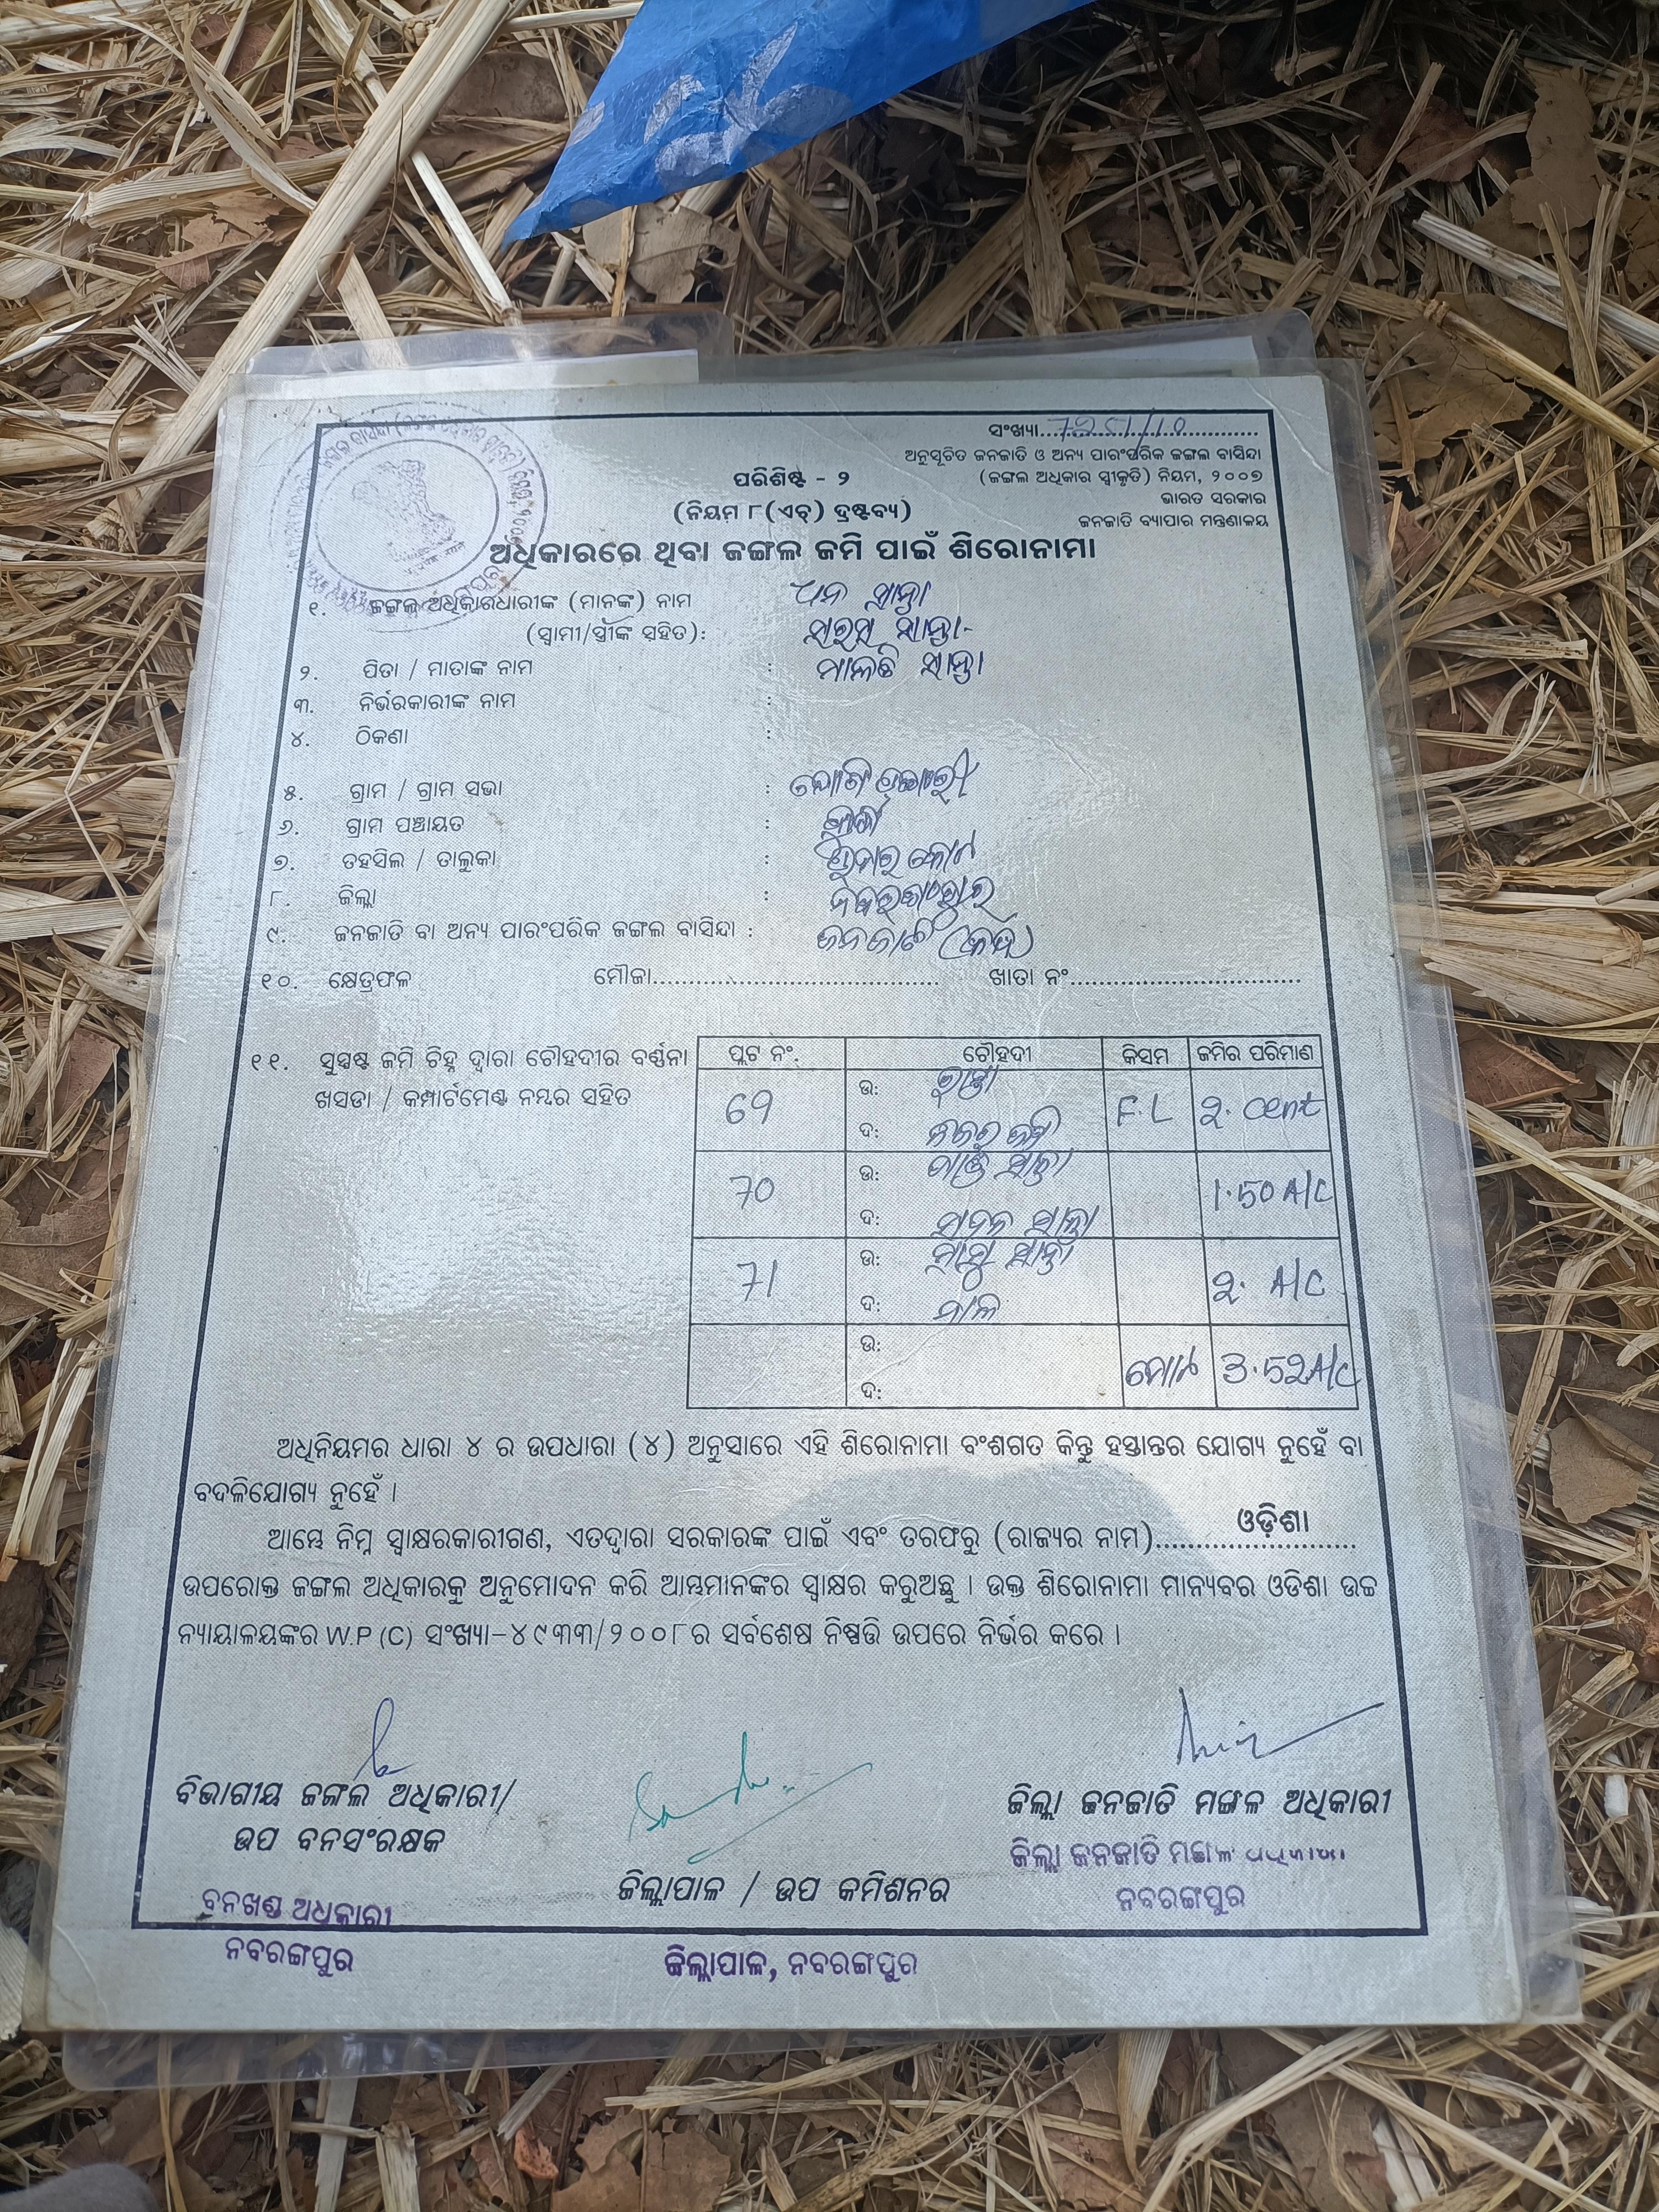 ସଂଖ୍ୟା
ଅନୁସୂଚିତ ଜନଜାତି ଓ ଅନ୍ୟ ପାରଂପରିକ ଜଙ୍ଗଲ ବାସିନ୍ଦା
(ଜଙ୍ଗଲ ଅଧିକାର ସ୍ୱୀକୃତି) ନିୟମ, ୨୦୦୭
ଭାରତ ସରକାର
ଜନଜାତି ବ୍ୟାପାର ମନ୍ତ୍ରଣାଳୟ
ପରିଶିଷ୍ଟ - ୨
(ନିୟମ ୮(ଏଚ୍) ଦ୍ରଷ୍ଟବ୍ୟ)
ଅଧିକାରରେ ଥିବା ଜଙ୍ଗଲ ଜମି ପାଇଁ ଶିରୋନାମା
୧. ଜଙ୍ଗଲ ଅଧିକାରଧାରୀଙ୍କ (ମାନଙ୍କ) ନାମ ଧନ ସାନ୍ତା
(ସ୍ୱାମୀ/ସ୍ତ୍ରୀଙ୍କ ସହିତ): ସାନ୍ତା
୨. ପିତା / ମାତାଙ୍କ ନାମ : ମାଳତି ସାନ୍ତା
୩. ନିର୍ଭରକାରୀଙ୍କ ନାମ :
୪. ଠିକଣା :
୫. ଗ୍ରାମ / ଗ୍ରାମ ସଭା :
୬. ଗ୍ରାମ ପଞ୍ଚାୟତ :
୭. ତହସିଲ / ତାଲୁକା :
୮. ଜିଲ୍ଲା :
୯. ଜନଜାତି ବା ଅନ୍ୟ ପାରଂପରିକ ଜଙ୍ଗଲ ବାସିନ୍ଦା : ଜନଜାତି
୧୦. କ୍ଷେତ୍ରଫଳ ମୌଜା........ ଖାତା ନଂ........
୧୧. ସୁସ୍ପଷ୍ଟ ଜମି ଚିହ୍ନ ଦ୍ୱାରା ଚୌହଦୀର ବର୍ଣ୍ଣନା
ଖସଡା / କମ୍ପାର୍ଟମେଣ୍ଟ ନମ୍ବର ସହିତ
ପ୍ଲଟ ନଂ. ଚୌହଦୀ କିସମ ଜମିର ପରିମାଣ
69 ଉ: ରାସ୍ତା F.L 2. cent
ଦ:
70 ଉ: 1.50 A/C
ଦ: ସାନ୍ତା
71 ଉ: ସାନ୍ତା 2. A/C
ଦ:
ଉ: ମୋଟ 3.52 A/C
ଦ:
ଅଧିନିୟମର ଧାରା ୪ ର ଉପଧାରା (୪) ଅନୁସାରେ ଏହି ଶିରୋନାମା ବଂଶଗତ କିନ୍ତୁ ହସ୍ତାନ୍ତର ଯୋଗ୍ୟ ନୁହେଁ ବା
ବଦଳିଯୋଗ୍ୟ ନୁହେଁ ।
ଆମ୍ଭେ ନିମ୍ନ ସ୍ୱାକ୍ଷରକାରୀଗଣ, ଏତଦ୍ୱାରା ସରକାରଙ୍କ ପାଇଁ ଏବଂ ତରଫରୁ (ରାଜ୍ୟର ନାମ)........ଓଡ଼ିଶା
ଉପରୋକ୍ତ ଜଙ୍ଗଲ ଅଧିକାରକୁ ଅନୁମୋଦନ କରି ଆମ୍ଭମାନଙ୍କର ସ୍ୱାକ୍ଷର କରୁଅଛୁ । ଉକ୍ତ ଶିରୋନାମା ମାନ୍ୟବର ଓଡିଶା ଉଚ୍ଚ
ନ୍ୟାୟାଳୟଙ୍କର W.P (C) ସଂଖ୍ୟା-୪୯୩୩/୨୦୦୮ର ସର୍ବଶେଷ ନିଷ୍ପତ୍ତି ଉପରେ ନିର୍ଭର କରେ ।
ବିଭାଗୀୟ ଜଙ୍ଗଲ ଅଧିକାରୀ/
ଉପ ବନସଂରକ୍ଷକ
ବନଖଣ୍ଡ ଅଧିକାରୀ
ନବରଙ୍ଗପୁର
ଜିଲ୍ଲାପାଳ / ଉପ କମିଶନର
ଜିଲ୍ଲାପାଳ, ନବରଙ୍ଗପୁର
ଜିଲ୍ଲା ଜନଜାତି ମଙ୍ଗଳ ଅଧିକାରୀ
ଜିଲ୍ଲା ଜନଜାତି ମଙ୍ଗଳ ଅଧିକାରୀ
ନବରଙ୍ଗପୁର